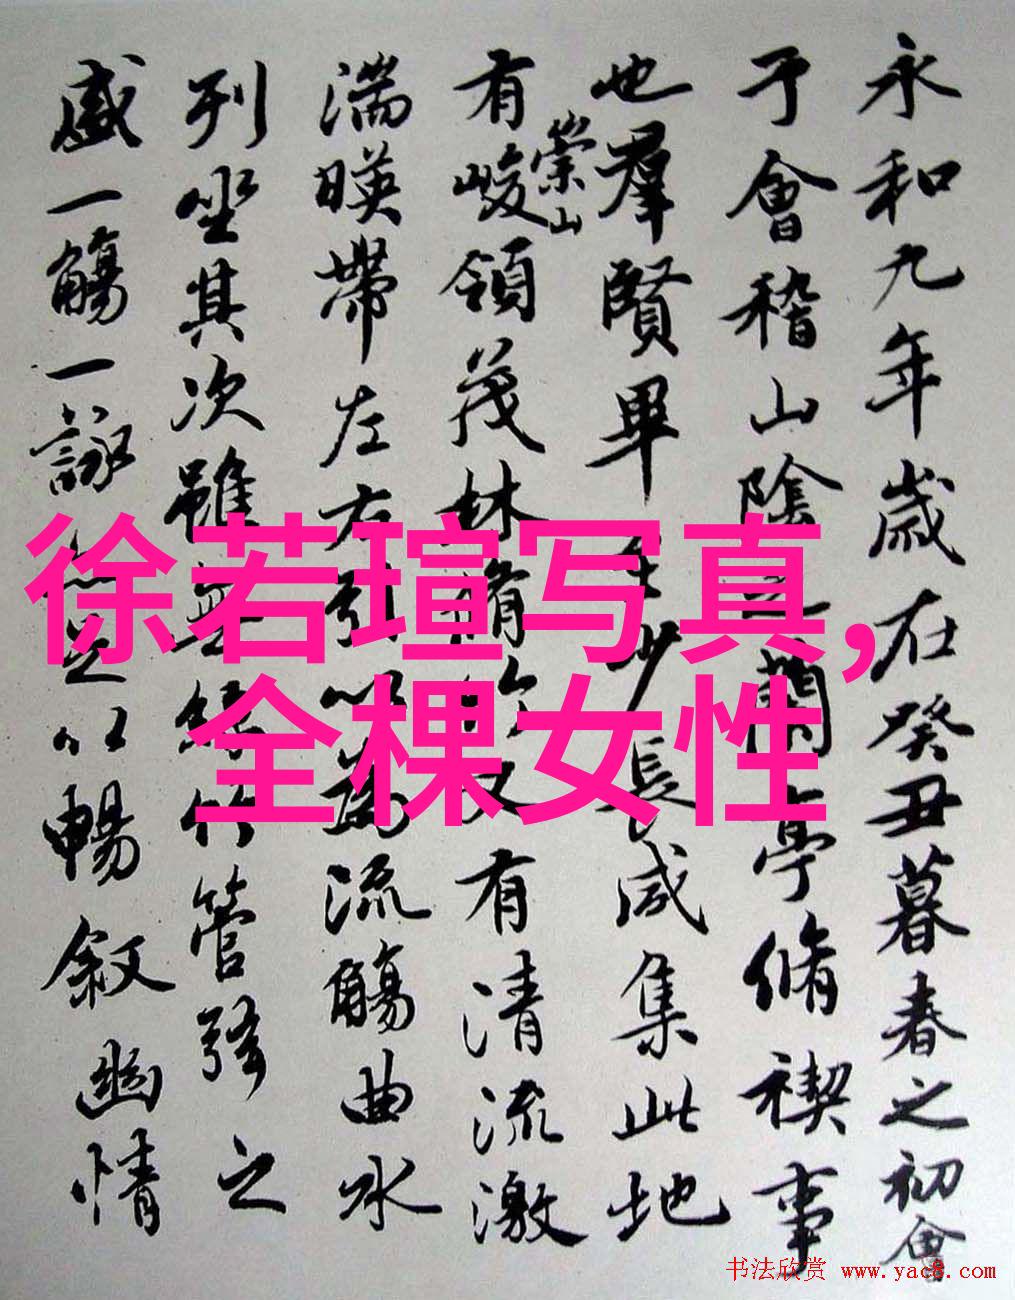 永和九年歲在癸丑暮春之初會
于會稽山陰之蘭亭脩禊事
也羣賢畢至少長咸集此地
有崇山峻領茂林脩竹又有清流激
湍暎帶左右引以為流觴曲水
列坐其次雖無絲竹管弦之
盛一觴一詠亦足以暢叙幽情
徐若瑄写真,
全棵女性
书法欣赏 www.yac8.com